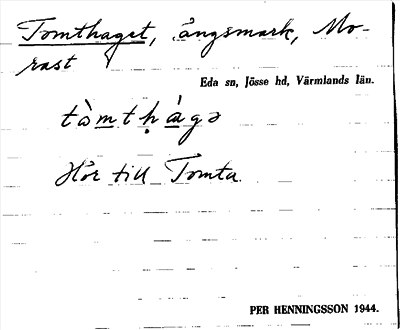 Tomthaget, ängsmark, Mo-
rast
Eda sn, Jösse hd, Värmlands län.
tòmtḥágə
Hör till Tomta.
PER HENNINGSSON 1944.